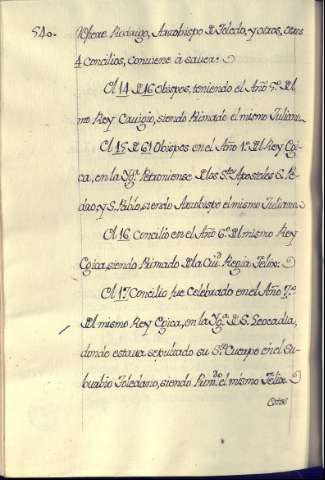 540. Rodrigo, Arzobispo de Toledo, y otros, otros
4 Concilios, conviene à saver:
El 14 de 16 Obispos, teniendo el Año 5.º del
mo Rey Ervigio, siendo Primado el mismo Julian.
El 15 de 61 Obispos en el Año 1.º del Rey Egi-
ca, en la Ygª. Pretoriense de los Stos. Apostoles S. Pe-
dro, y S. Pablo, siendo Arzobispo el mismo Juliano.
El 16 Concilio en el Año 6.º del mismo Rey
Egica, siendo Primado de la Ciud. Regia Felix.
El 17 Concilio fue celebrado en el Año 7.º
del mismo Rey Egica, en la Ygª. de S. Leocadia,
donde estava sepultado su Sto. Cuerpo en el Su-
burbio Toledano, siendo Prim.do el mismo Felix.
Estos